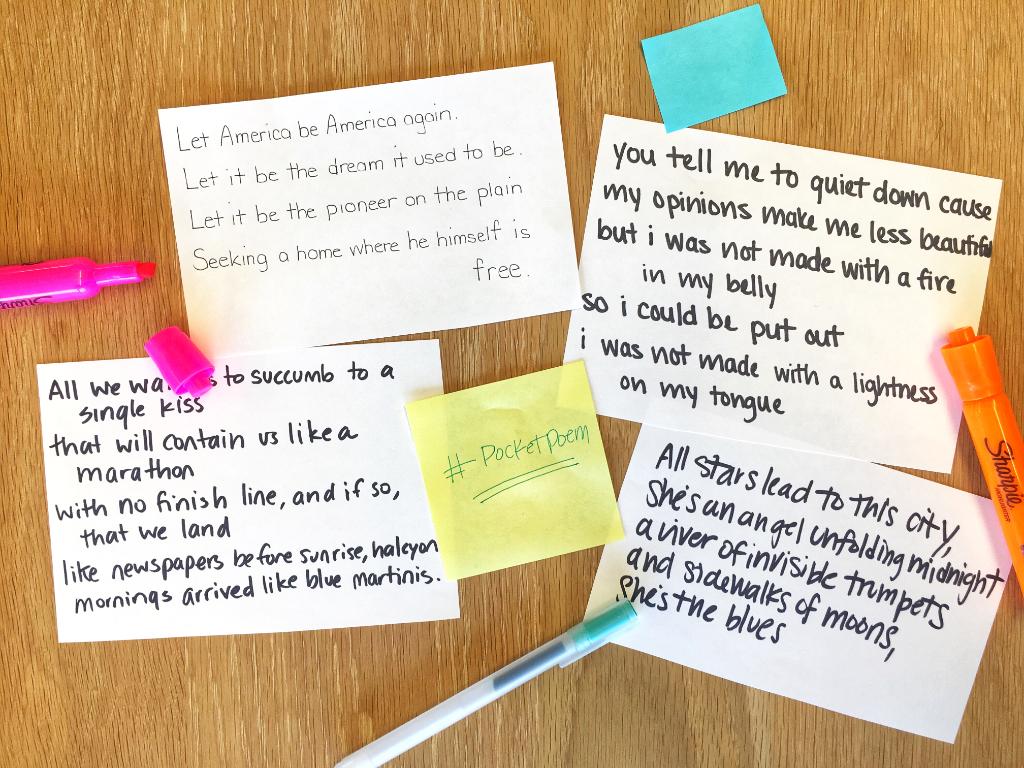 Let America be America again.
Let it be the dream it used to be.
Let it be the pioneer on the plain
Seeking a home where he himself is
free.
you tell me to quiet down cause
my opinions make me less beautiful
but i was not made with a fire
in my belly
so i could be put out
i was not made with a lightness
on my tongue
All we wa s to succumb to a
single kiss
that will contain us like a
marathon
with no finish line, and if so,
that we land
like newspapers before sunrise, halcyon
mornings arrived like blue martinis.
#PocketPoem
All stars lead to this city,
she's an angel unfolding midnight
a river of invisible trumpets
and sidewalks of moons,
she's the blues
Sharpie